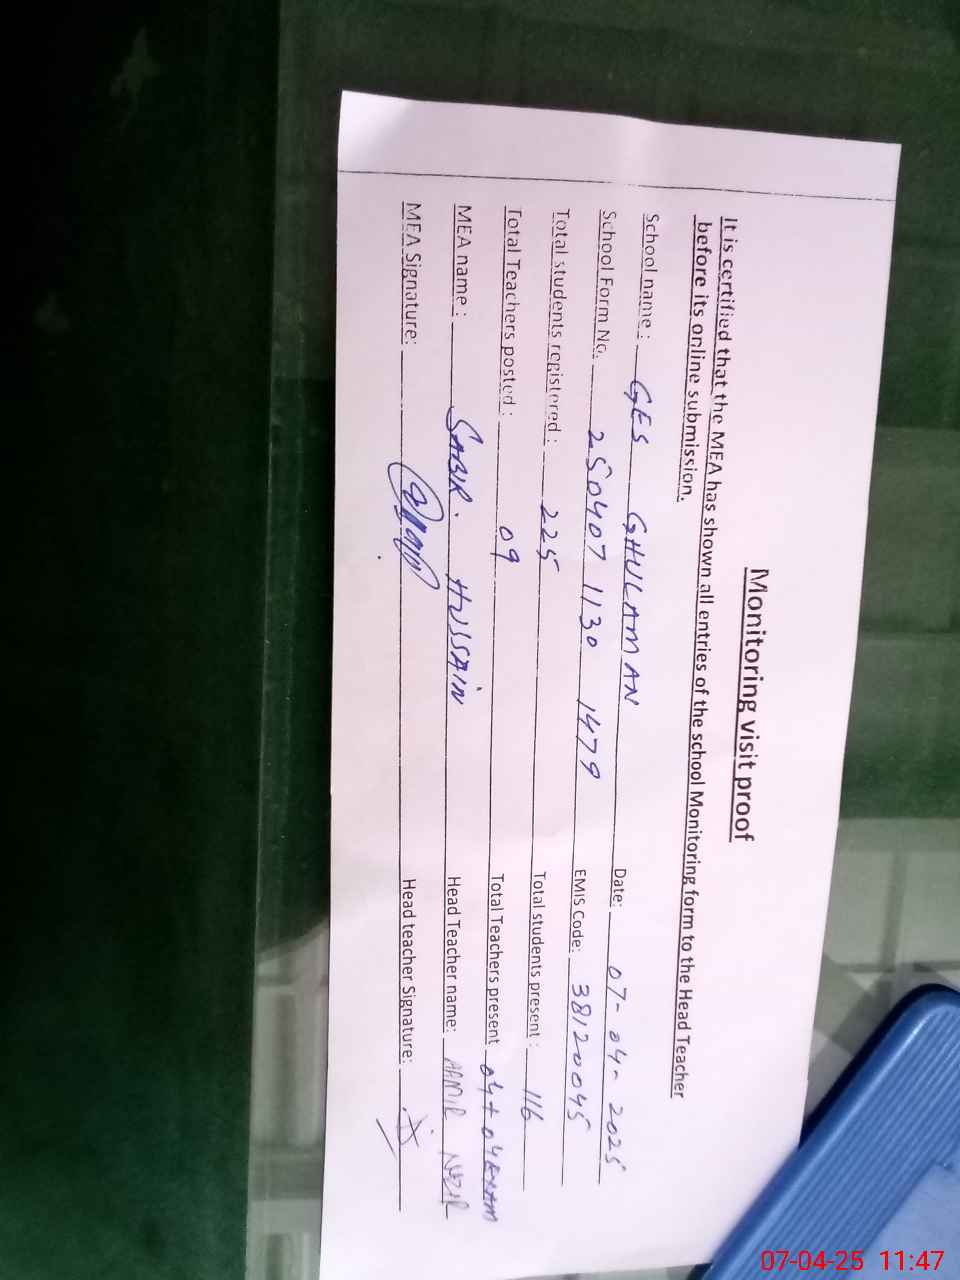 Monitoring visit proof
It is certified that the MEA has shown all entries of the school Monitoring form to the Head Teacher
before its online submission.
School name: GES GHULAMAN Date: 07-04-2025
School Form No. 250407 1130 1479 EMIS Code: 38120045
Total students registered: 225 Total students present: 116
Total Teachers posted: 09 Total Teachers present 04+04 EXAM
MEA name: SABIR. HUSSAIN Head Teacher name: AAMIR NAZIR
MEA Signature: Head teacher Signature:
07-04-25 11:47